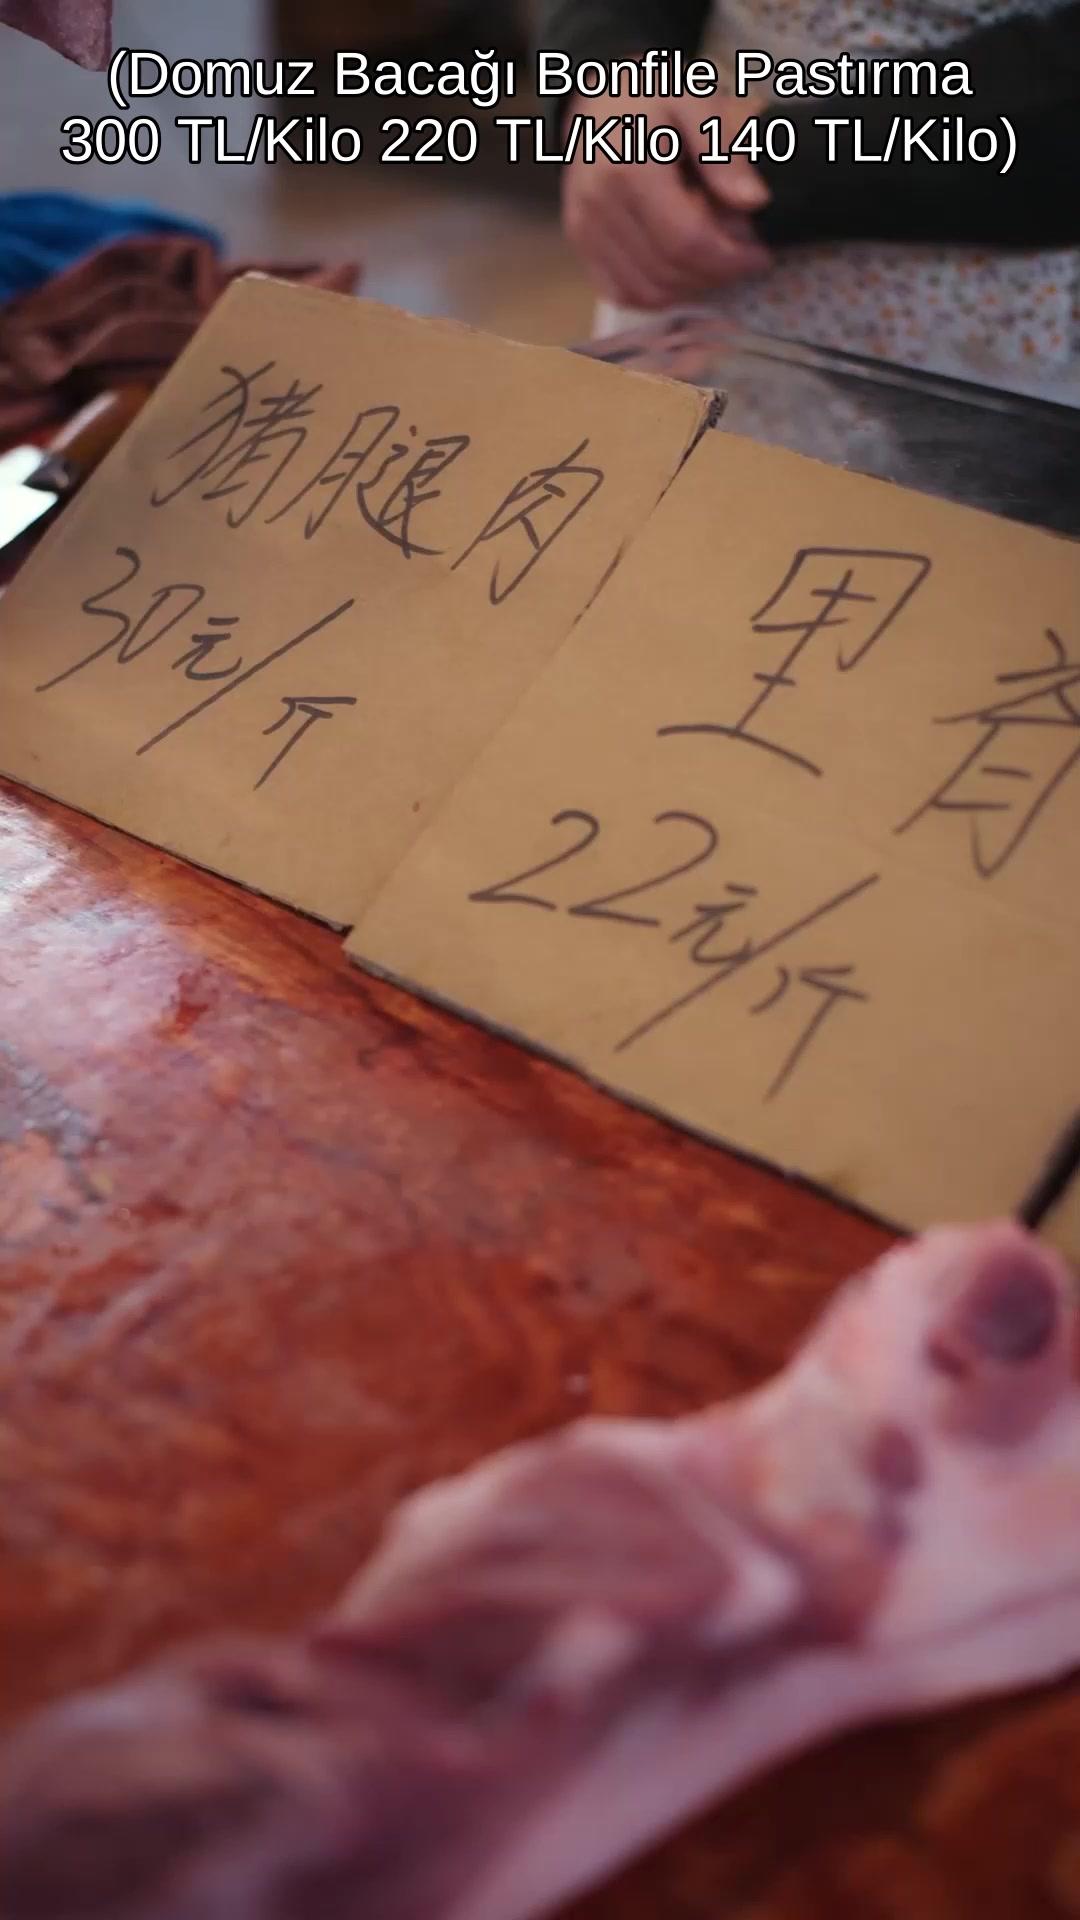 (Domuz Bacağı Bonfile Pastırma
300 TL/Kilo 220 TL/Kilo 140 TL/Kilo)
猪腿肉
30元/斤
里脊
22元/斤